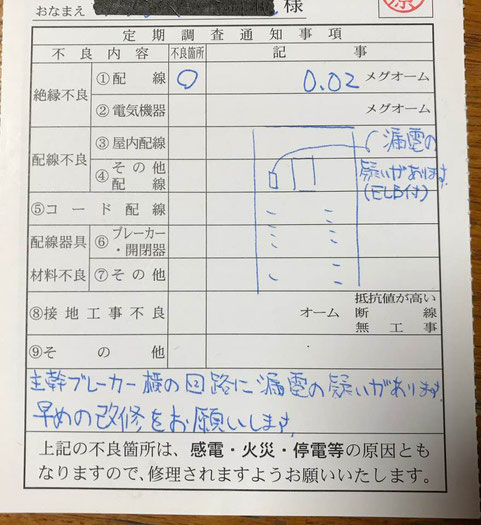 おなまえ 様
定期調査通知事項
不良内容 不良箇所 記事
絶縁不良 ①配線 〇 0.02 メグオーム
②電気機器 メグオーム
配線不良 ③屋内配線
④その他配線
漏電の
疑いがあります。
(ELB付)
⑤コード配線
配線器具 ⑥ブレーカー・開閉器
材料不良 ⑦その他
⑧接地工事不良 オーム 抵抗値が高い
断線
無工事
⑨その他
主幹ブレーカー横の回路に漏電の疑いがあります。
早めの改修をお願いします。
上記の不良箇所は、感電・火災・停電等の原因とも
なりますので、修理されますようお願いいたします。